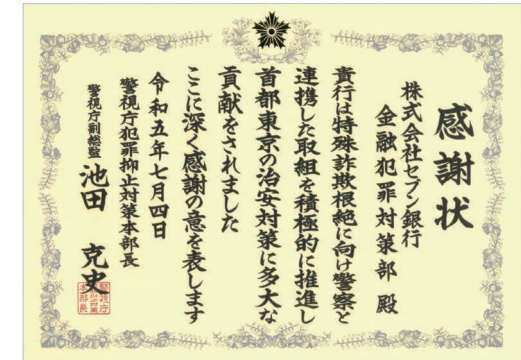 感謝状
株式会社セブン銀行
金融犯罪対策部 殿
貴行は特殊詐欺根絶に向け警察と
連携した取組を積極的に推進し
首都東京の治安対策に多大な
貢献をされました
ここに深く感謝の意を表します
令和五年七月四日
警視庁犯罪抑止対策本部長
警視庁副総監 池田 克史